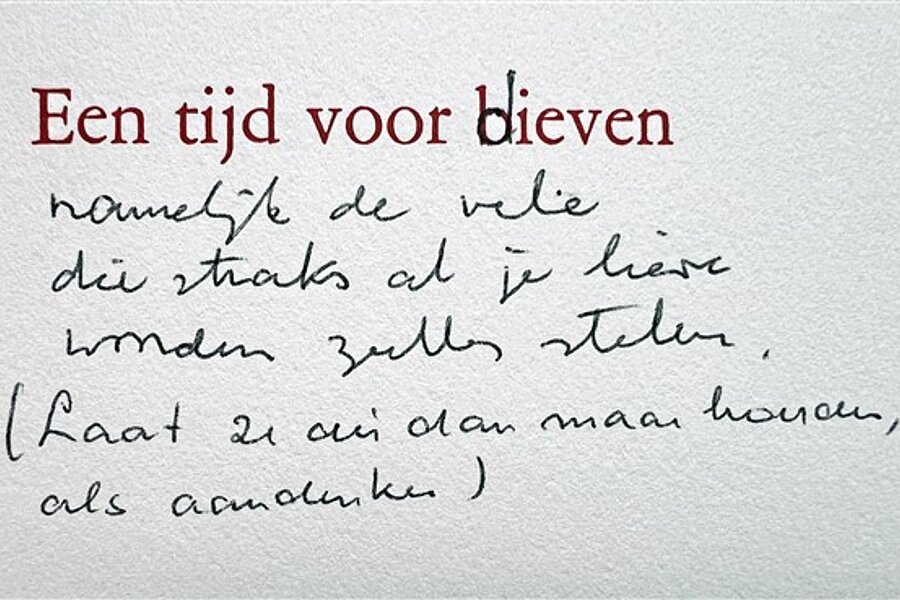 Een tijd voor dieven
namelijk de vele
die straks al je lieve
woorden zullen stelen.
(Laat ze die dan maar houden,
als aandenken)